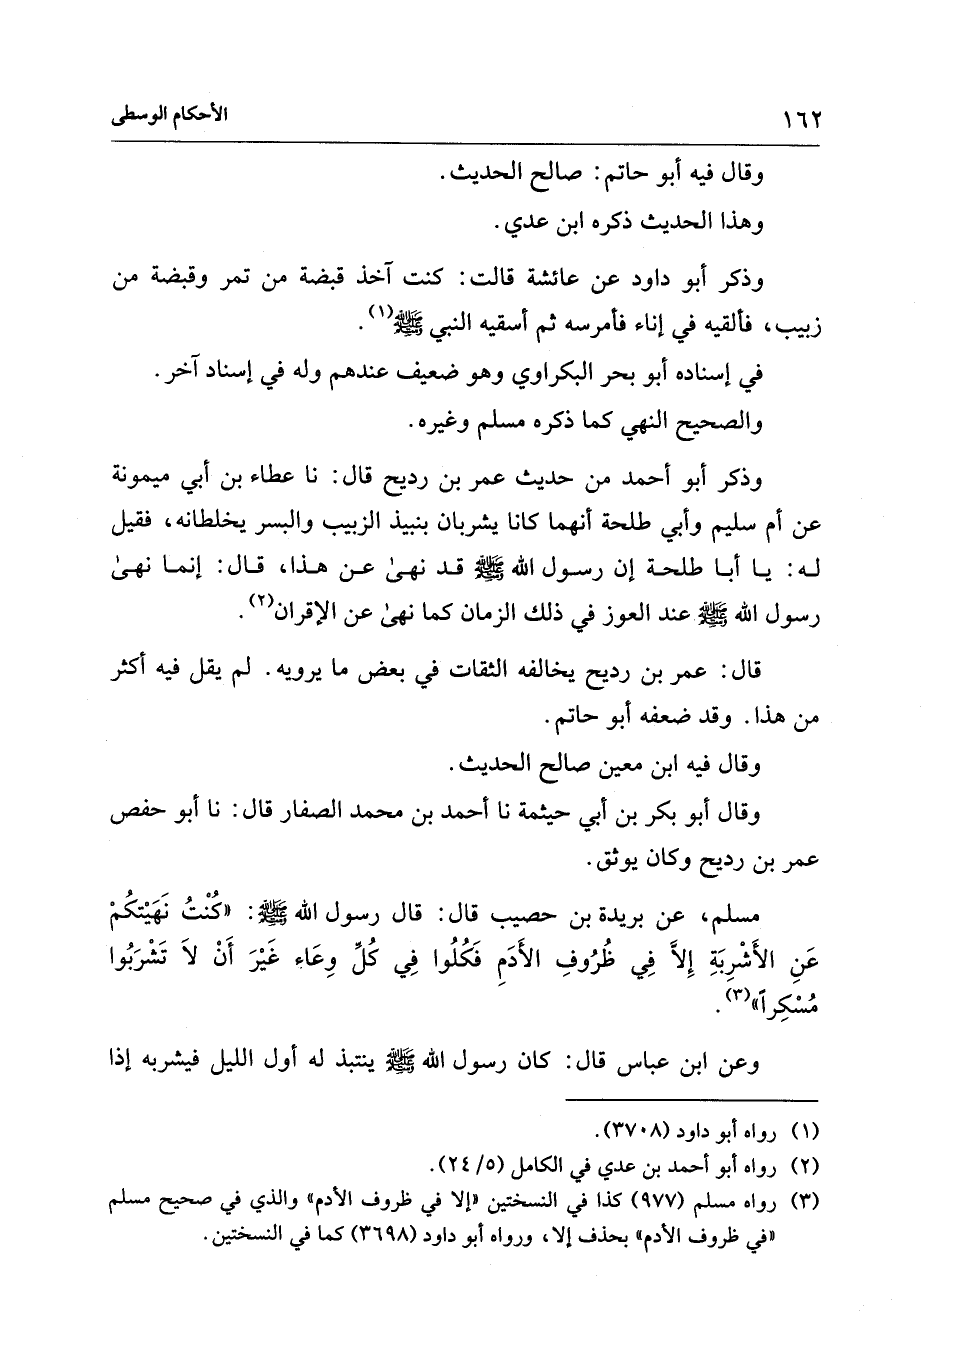 ١٦٢ الأحكام الوسطى
وقال فيه أبو حاتم: صالح الحديث.
وهذا الحديث ذكره ابن عدي.
وذكر أبو داود عن عائشة قالت: كنت آخذ قبضة من تمر وقبضة من
زبيب، فألقيه في إناء فأمرسه ثم أسقيه النبي ﷺ(١).
في إسناده أبو بحر البكراوي وهو ضعيف عندهم وله في إسناد آخر.
والصحيح النهي كما ذكره مسلم وغيره.
وذكر أبو أحمد من حديث عمر بن رديح قال: نا عطاء بن أبي ميمونة
عن أم سليم وأبي طلحة أنهما كانا يشربان بنبيذ الزبيب والبسر يخلطانه، فقيل
له: يا أبا طلحة إن رسول الله ﷺ قد نهىٰ عن هذا، قال: إنما نهىٰ
رسول الله ﷺ عند العوز في ذلك الزمان كما نهىٰ عن الإقران(٢).
قال: عمر بن رديح يخالفه الثقات في بعض ما يرويه. لم يقل فيه أكثر
من هذا. وقد ضعفه أبو حاتم.
وقال فيه ابن معين صالح الحديث.
وقال أبو بكر بن أبي حيثمة نا أحمد بن محمد الصفار قال: نا أبو حفص
عمر بن رديح وكان يوثق.
مسلم، عن بريدة بن حصيب قال: قال رسول الله ﷺ: «كُنْتُ نَهَيْتكُمْ
عَنِ الأَشْرِبَةِ إِلاَّ فِي ظُرُوفِ الأَدَمِ فَكُلُوا فِي كُلِّ وِعَاءِ غَيْرَ أَنْ لاَ تَشْرَبُوا
مُسْكِراً»(٣).
وعن ابن عباس قال: كان رسول الله ﷺ ينتبذ له أول الليل فيشربه إذا
(١) رواه أبو داود (٣٧٠٨).
(٢) رواه أبو أحمد بن عدي في الكامل (٥/ ٢٤).
(٣) رواه مسلم (٩٧٧) كذا في النسختين «إلا في ظروف الأدم» والذي في صحيح مسلم
«في ظروف الأدم» بحذف إلا، ورواه أبو داود (٣٦٩٨) كما في النسختين.